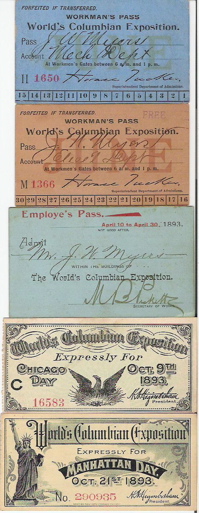 FORFEITED IF TRANSFERRED.
WORKMAN'S PASS
World's Columbian Exposition.
Pass J. W. Myers
Account Mech Dept
At Workmen's Gates between 6 a.m. and 1 p.m.
H 1650 Horace Tucker
Superintendent Department of Admissions
15 14 13 12 11 10 9 8 7 6 5 4 3 2 1
FORFEITED IF TRANSFERRED.
FREE
WORKMAN'S PASS
World's Columbian Exposition.
Pass J. W. Myers
Account Dept
At Workmen's Gates between 6 a.m. and 1 p.m.
M 1366 Horace Tucker
Superintendent Department of Admissions
30 29 28 27 26 25 24 23 22 21 20 19 18 17 16
Employe's Pass.
April 10 to April 30, 1893.
NOT GOOD AFTER
Admit
Mr. J. W. Myers
WITHIN THE BUILDINGS OF
The World's Columbian Exposition.
World's Columbian Exposition
Expressly For
CHICAGO DAY
OCT. 9TH 1893.
C
16583
President.
World's Columbian Exposition
EXPRESSLY FOR
MANHATTAN DAY
OCT. 21ST 1893.
No. 290935
President.